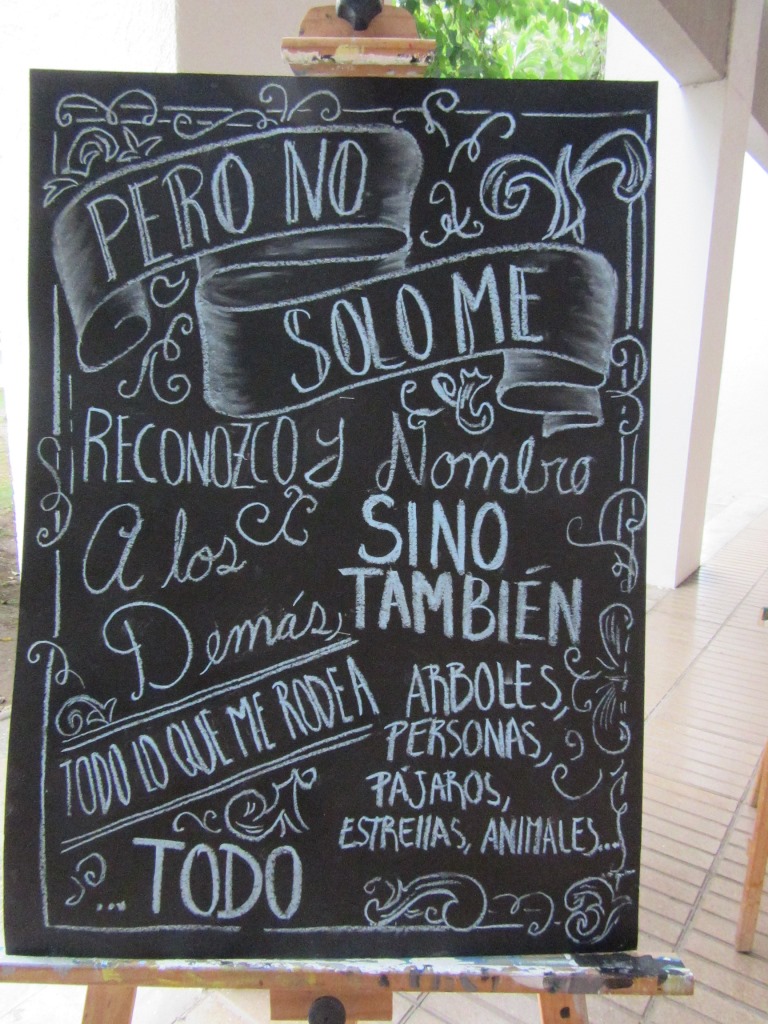 PERO NO
SOLO ME
RECONOZCO Y Nombro
A los
Demás,
SINO
TAMBIÉN
TODO LO QUE ME RODEA
ARBOLES,
PERSONAS,
PÁJAROS,
ESTRELLAS, ANIMALES...
... TODO